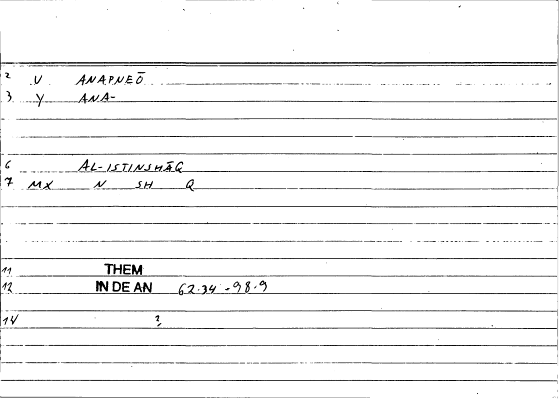 2 V ANAPNEŌ
3 Y ANA-
6 AL-ISTINSHĀQ
7 MX N SH Q
11 THEM
12 IN DE AN 62.34 -98.9
14 ?